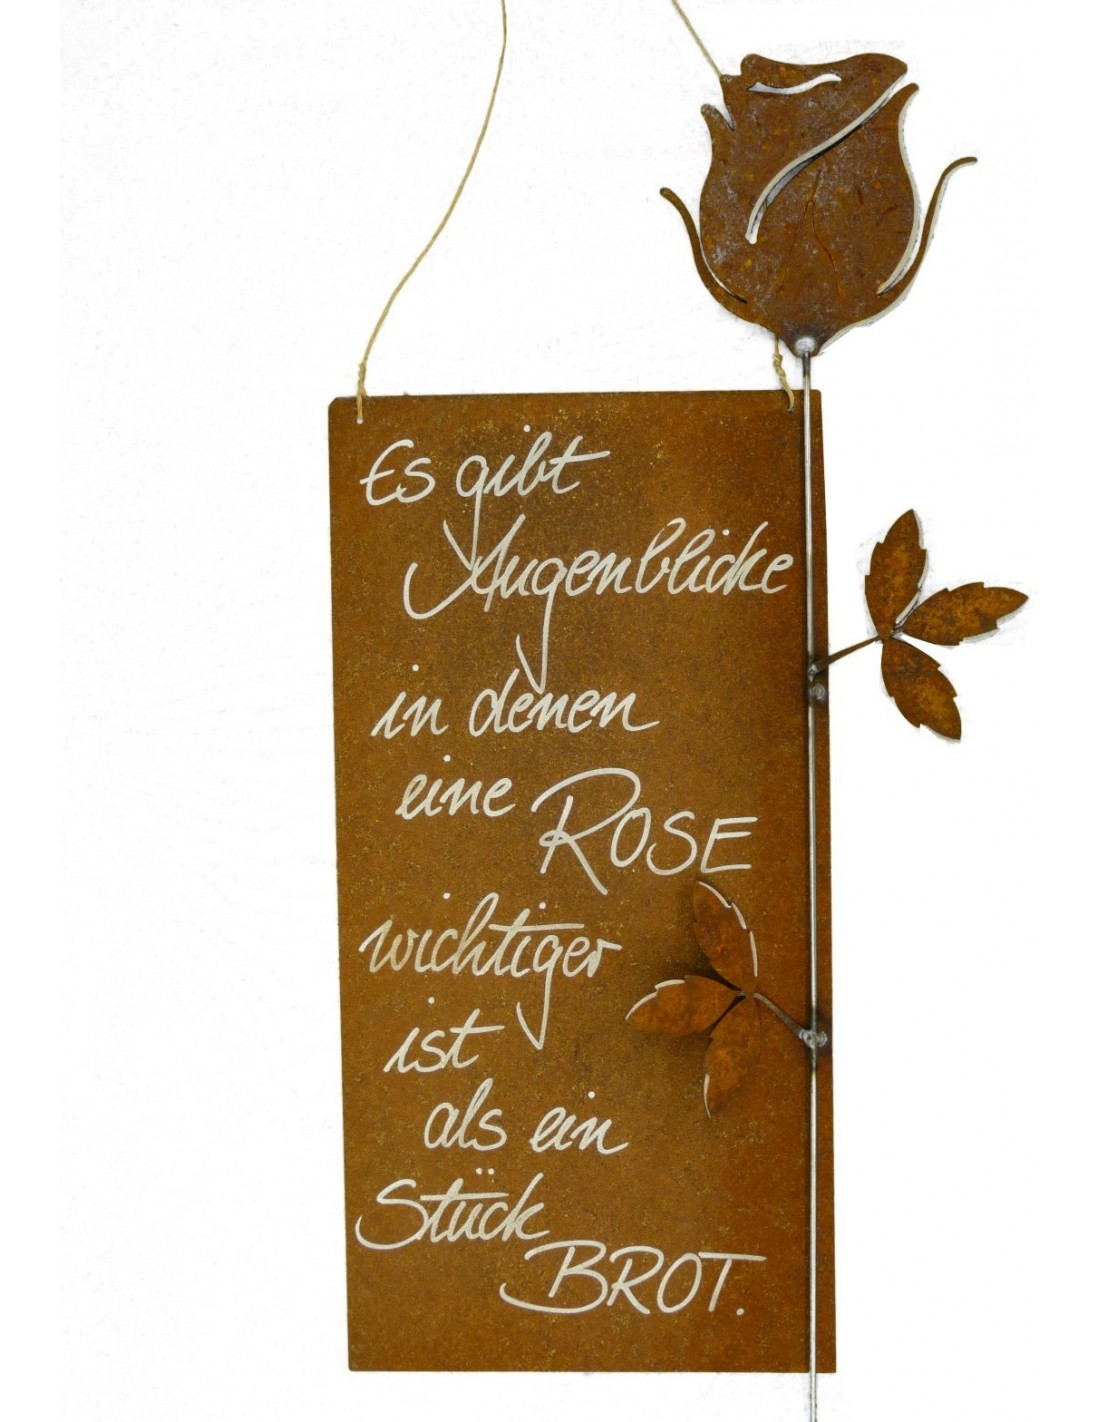 Es gibt
Augenblicke
in denen
eine ROSE
wichtiger
ist
als ein
Stück
BROT.